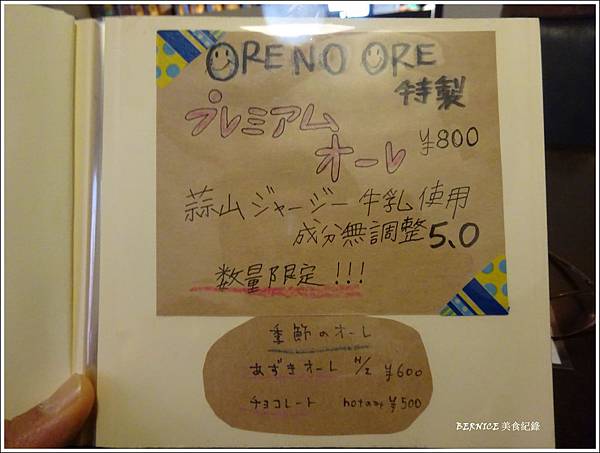 ORENO ORE
特製
プレミアム
オーレ ¥800
蒜山ジャージー牛乳使用
成分無調整5.0
数量限定!!!
季節のオーレ
あずきオーレ H/I ¥600
チョコレート hotのみ ¥500
BERNICE 美食紀錄